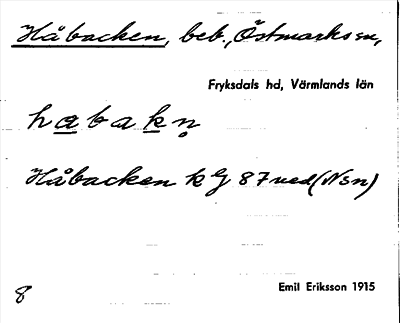 Håbacken, beb., Östmarks sn,
Fryksdals hd, Värmlands län
habakn̥
Håbacken kG 87 ved (Nsn)
8 Emil Eriksson 1915